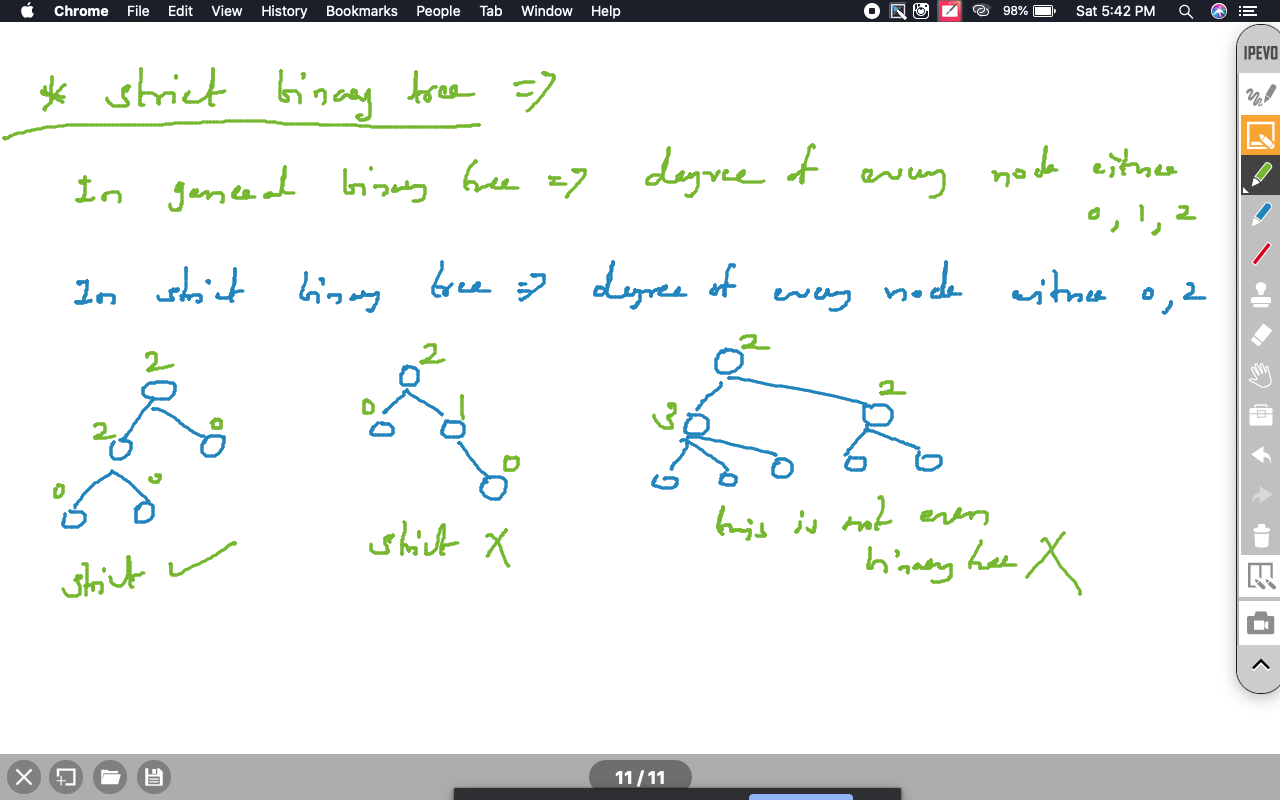 Chrome File Edit View History Bookmarks People Tab Window Help 98% Sat 5:42 PM
IPEVO
* strict binary tree =>
In general binary tree => degree of every node either
0, 1, 2
In strict binary tree => degree of every node either 0, 2
2
2 0
0 0
strict ✓
2
0 1
0
strict X
2
3 2
this is not even
binary tree X
11 / 11